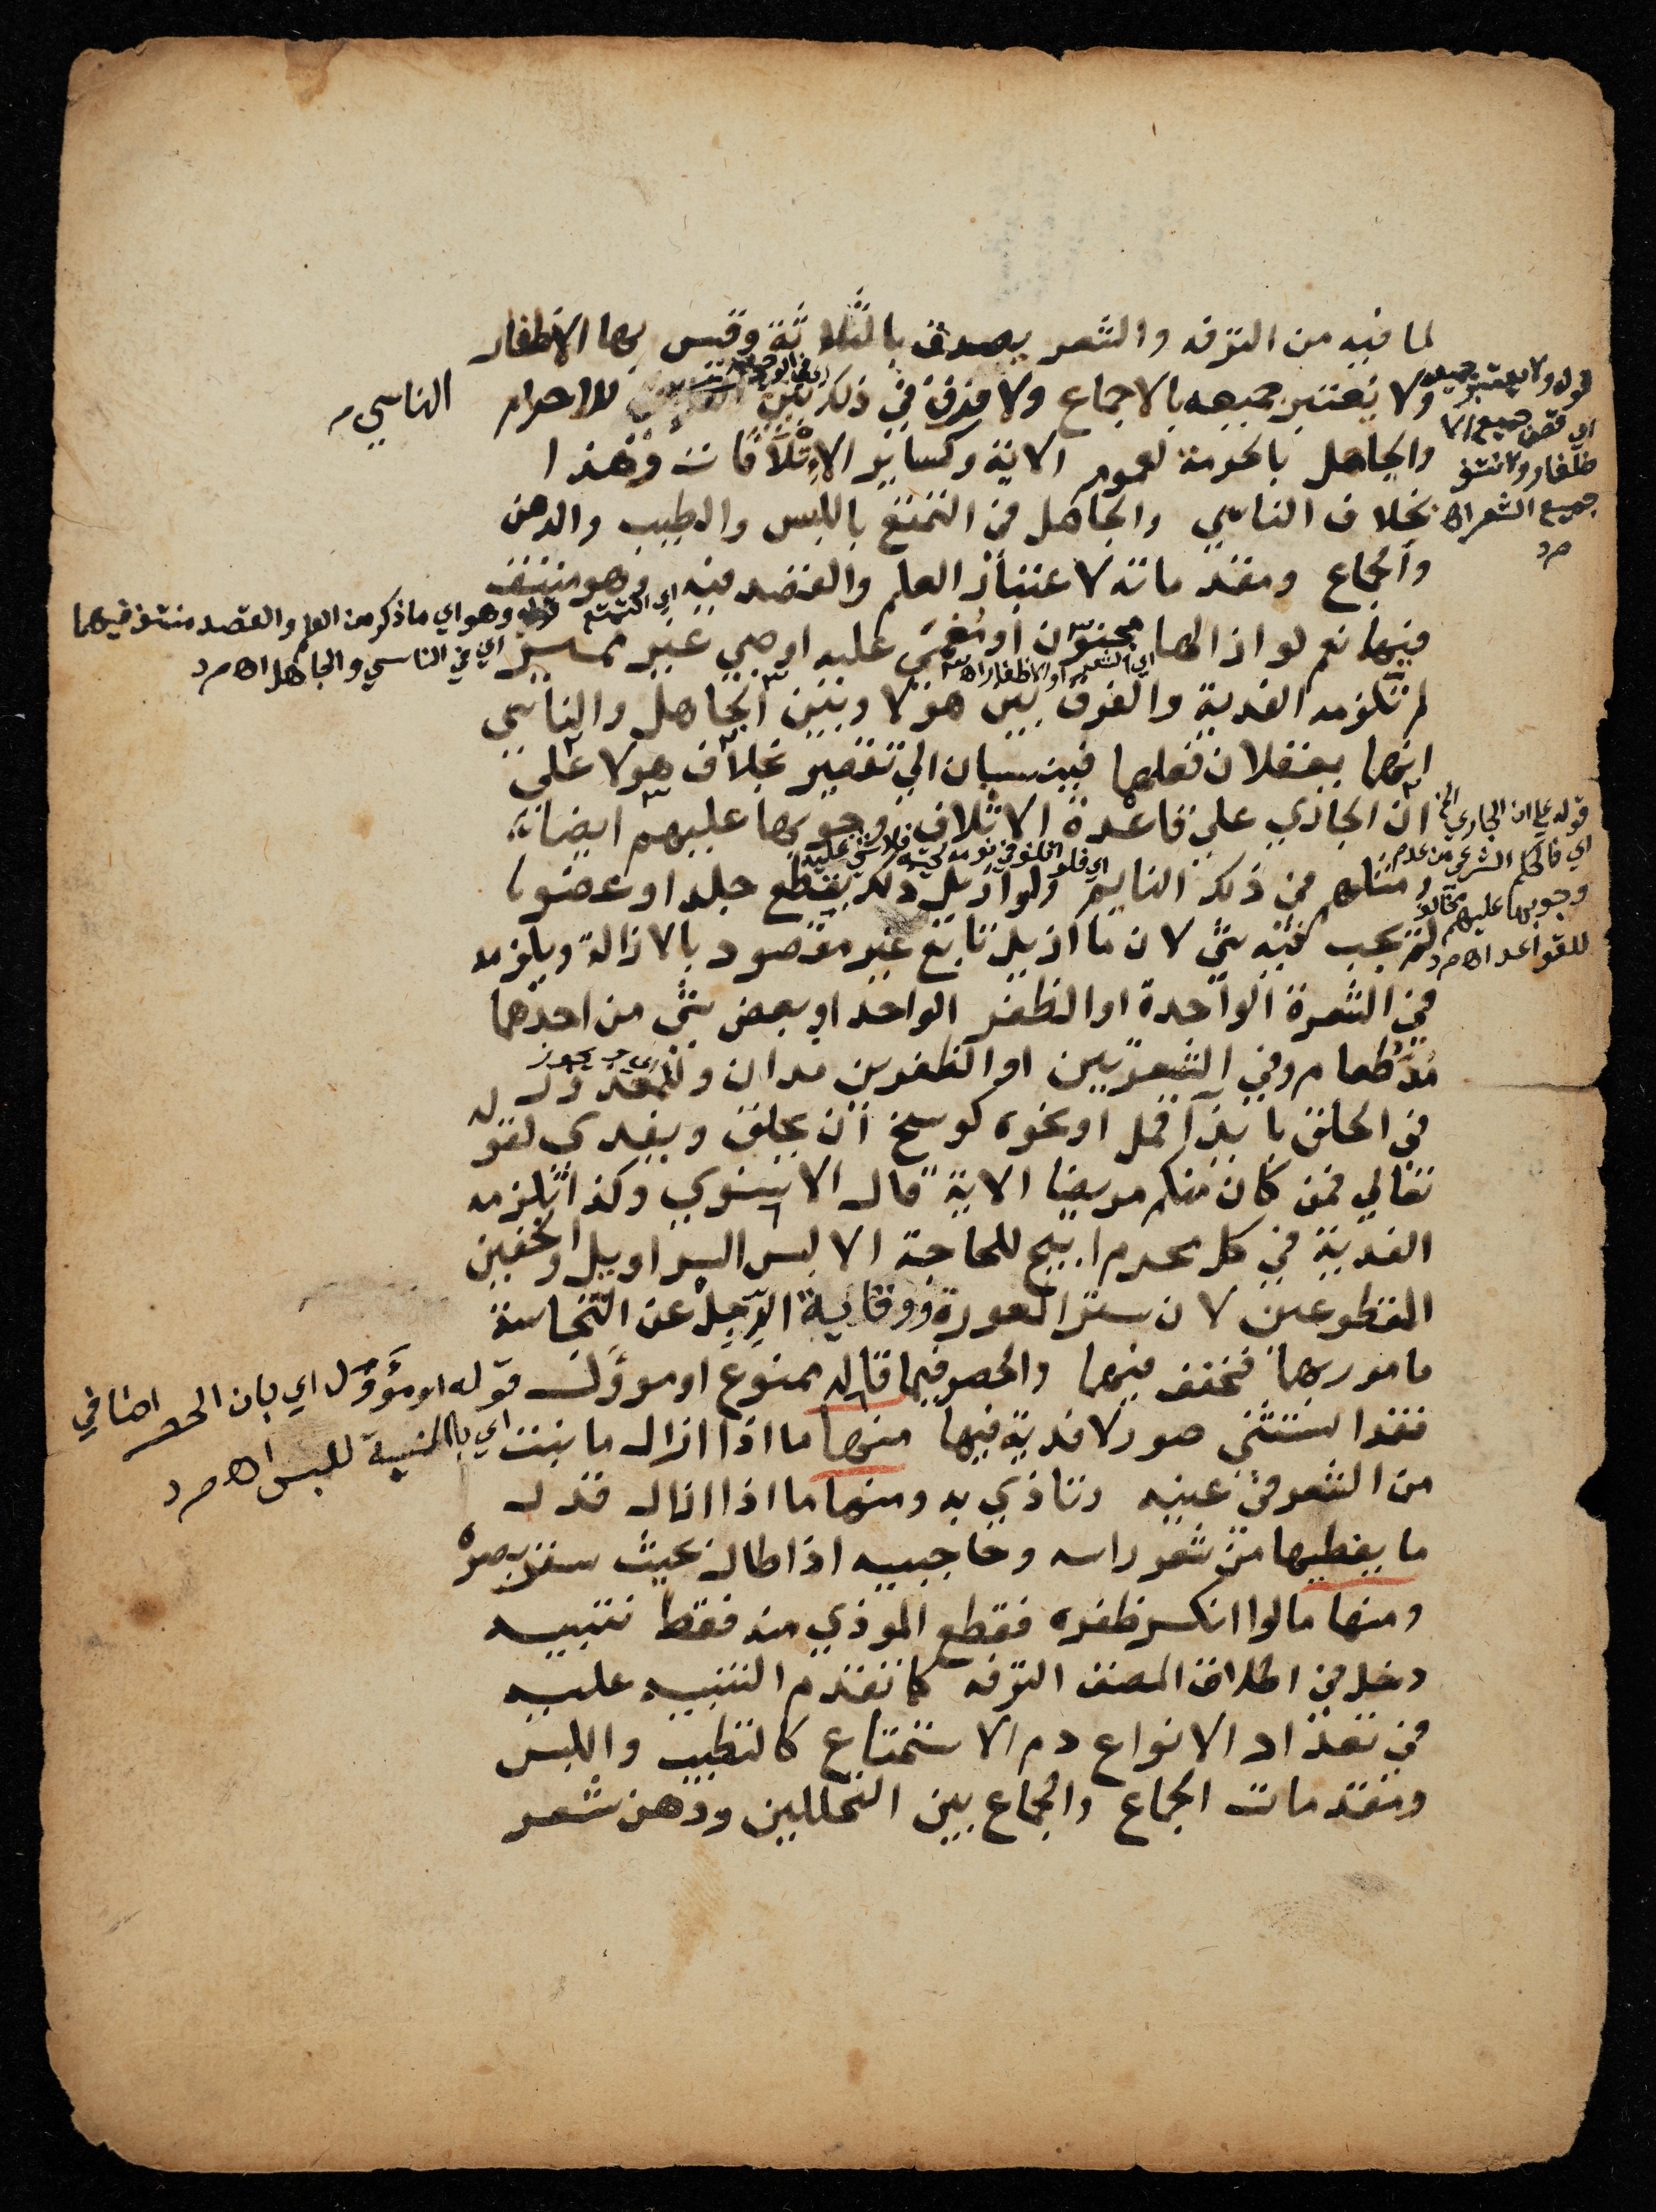 لما فيه من الترفه والشعر يصدق بالثلاثة وقيس بها الاظفار
ولا يعتبر جميعه بالاجماع ولا فرق في ذلك بين الناسي للاحرام
والجاهل بالحرمة لعموم الاية وكساير الاتلافات وهذا
بخلاف الناسي والجاهل في التمتع باللبس والطيب والدهن
والجماع ومقدماته لاعتبار العلم والقصد فيه وهو منتف
فيها نعم لو ازالها مجنون او مغمى عليه او صبي غير مميز
لم تلزمه الفدية والفرق بين هولا وبين الجاهل والناسي
انهما يعقلان فعلهما فينسبان الي تقصير بخلاف هولا على
ان الجاري على قاعدة الاتلاف وجوبها عليهم ايضا
ومثلهم في ذلك النايم ولو ازيل ذلك بقطع جلد او عضو
لم يجب فيه شي لان ما ازيل تابع غير مقصود بالازالة ويلزمه
في الشعرة الواحدة او الظفر الواحد او بعض شي من احدهما
مد طعام وفي الشعرتين او الظفرين مدان وللمعذور
في الحلق بايذا قمل او نحوه كوسخ ان يحلق ويفدى لقوله
تعالي فمن كان منكم مريضا الاية قال الاسنوي وكذا تلزمه
الفدية في كل محرم ابيح للحاجة الا لبس السراويل والخفين
المقطوعين لان ستر العورة ووقاية الرجل عن النجاسة
مامور بهما فخفف فيهما والحصر فيما قاله ممنوع او موول
فقد استثنى صور لا فدية فيها منها ما اذا ازال ما نبت
من الشعر في عينه وتاذي به ومنها ما اذا ازال قدر
ما يغطيها من شعر راسه وحاجبيه اذا طال بحيث ستر بصره
ومنها ما لو انكسر ظفره فقطع الموذي منه فقط تنبيه
دخل في اطلاق المصنف الترفه كما تقدم التنبيه عليه
في تعداد الانواع دم الاستمتاع كالتطيب واللبس
ومقدمات الجماع والجماع بين التحللين ودهن شعر
الناسي
قوله ولا يعتبر جميعه
اي قص جميع الا
ظفار ولا نتف
جميع الشعر اه
م د
اي التمتع
قوله وهو اي ما ذكر من العلم والقصد منتف فيهما
اي في الناسي والجاهل اه م د
اي الشعر او الاظفار اه
قوله على ان الجاري الخ
اي فالحكم الشرعي من عدم
وجوبها عليهم مخالف
للقواعد اه م د
اي فلو اتلف في نومه لحيته فلا شي عليه
قوله او مؤول اي بان الحصر اضافي
اي بالنسبة للبس اه م د